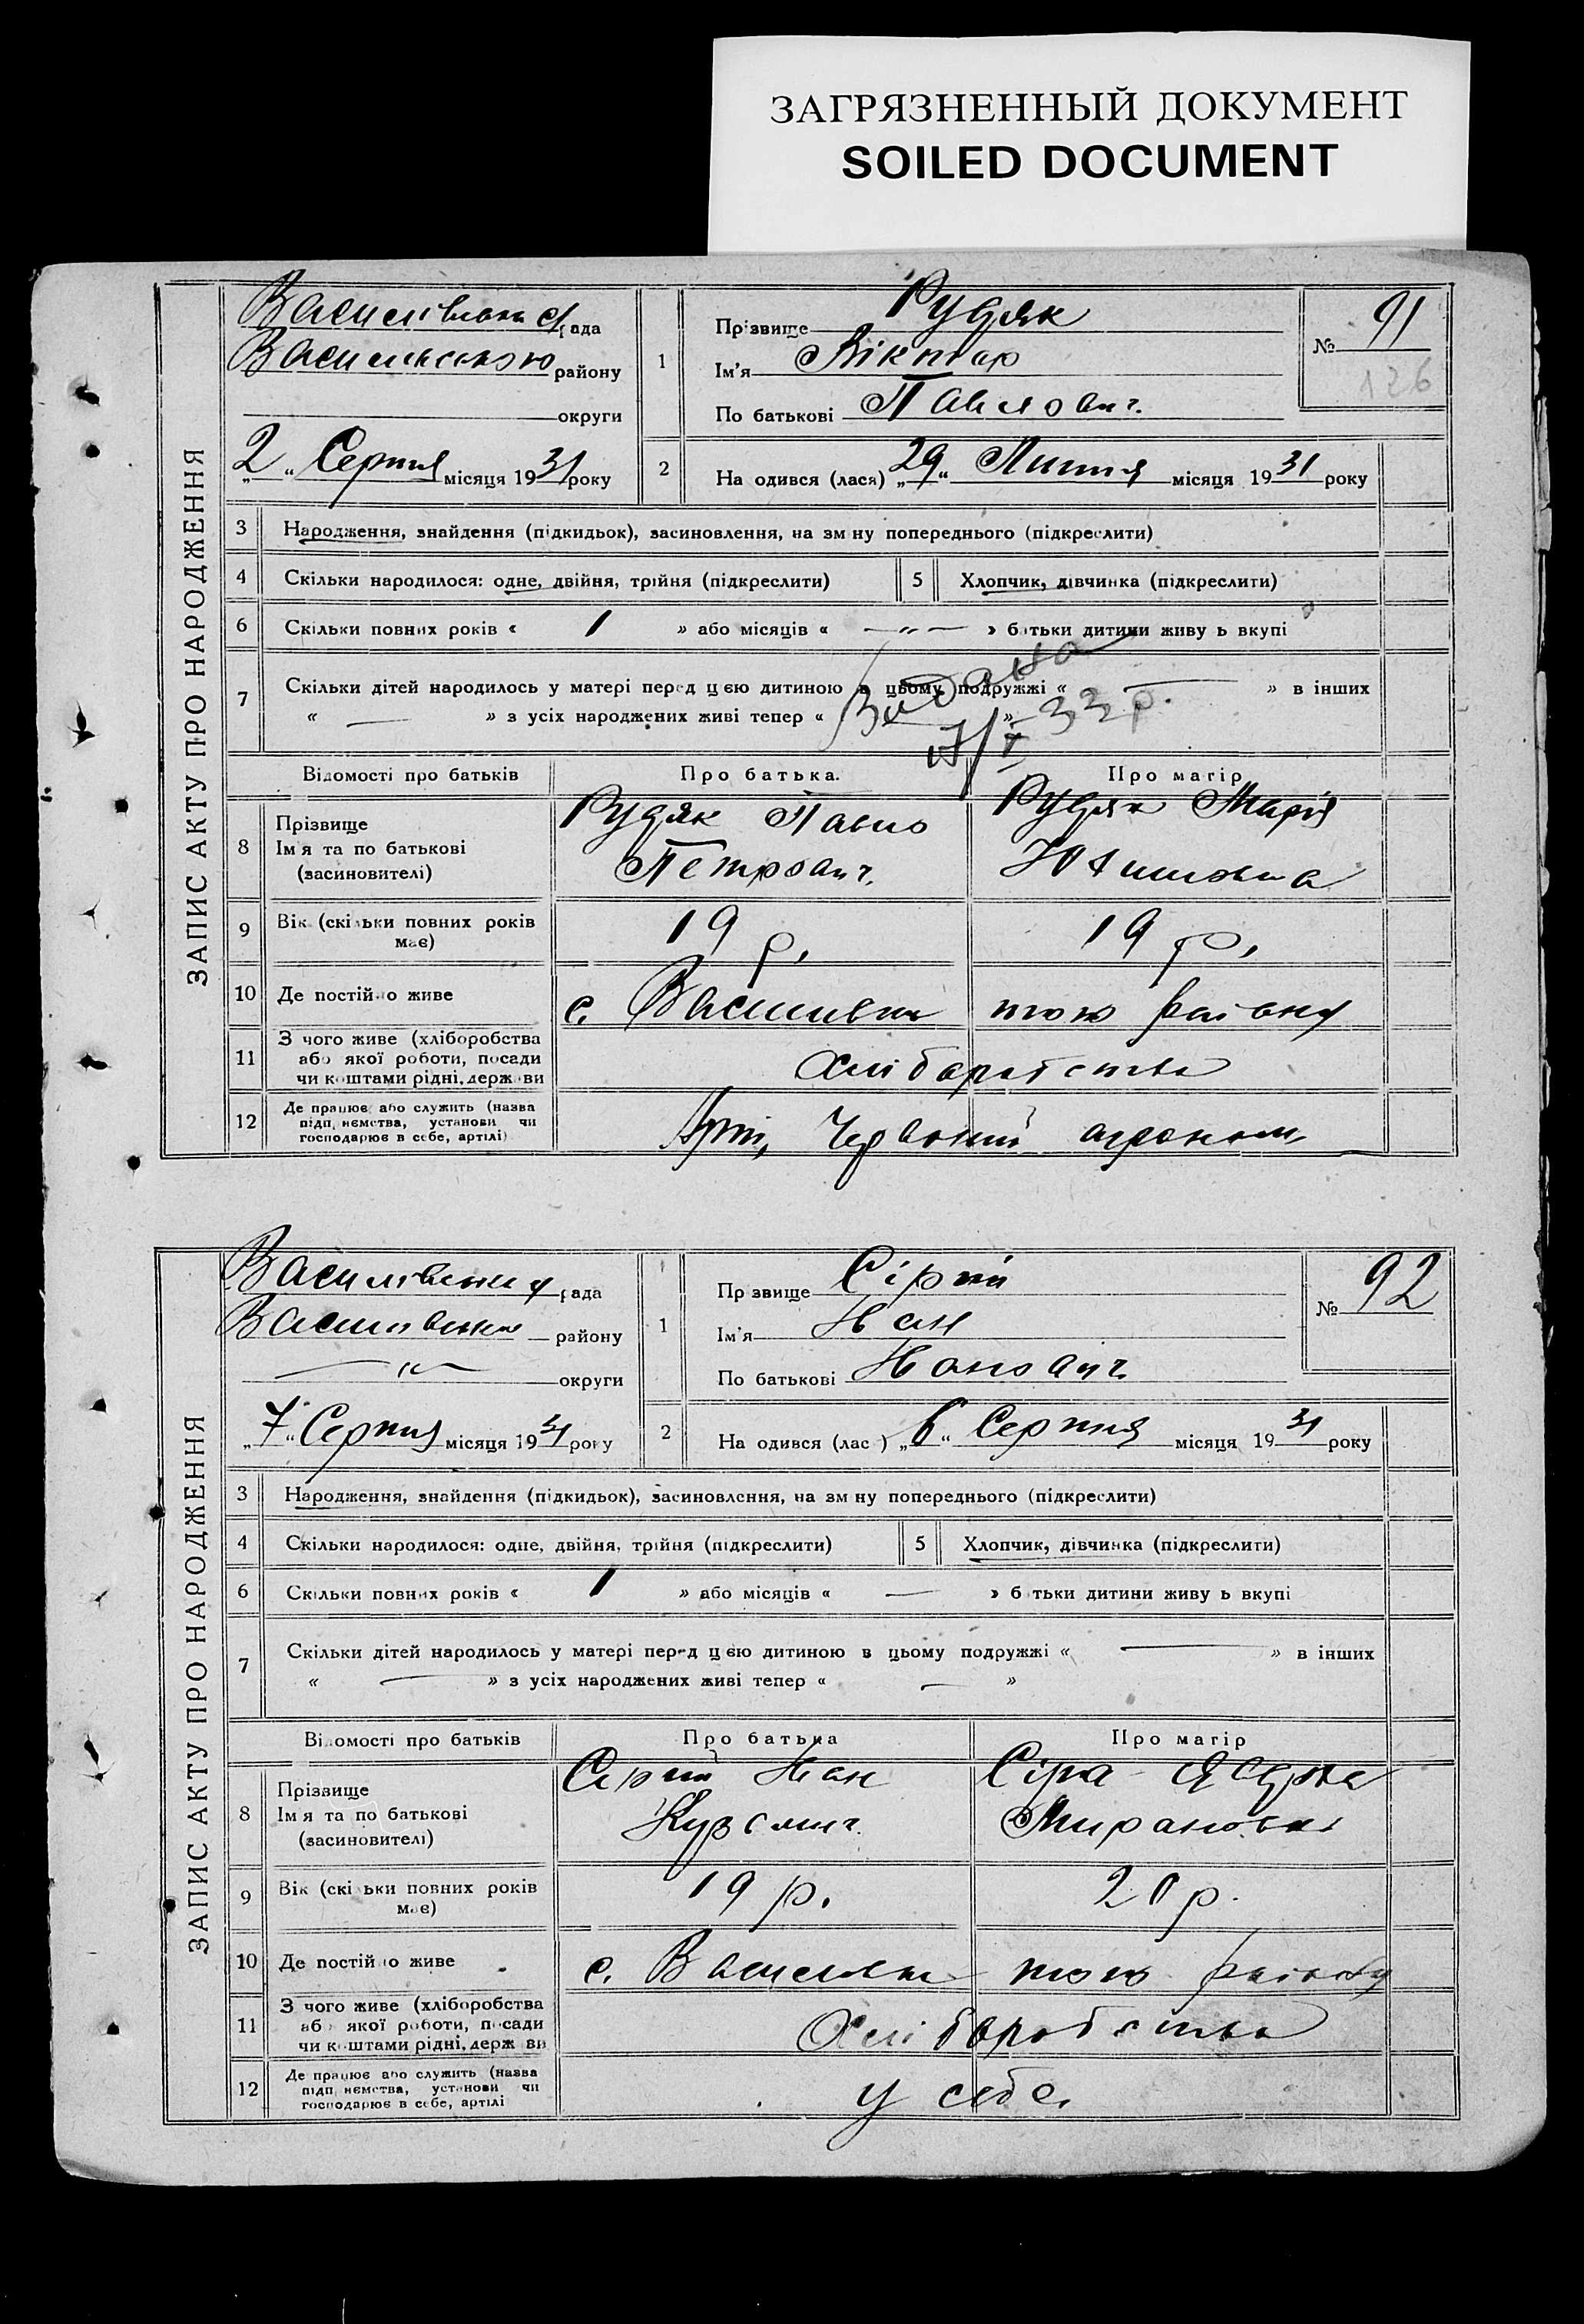 ЗАГРЯЗНЕННЫЙ ДОКУМЕНТ
SOILED DOCUMENT
ЗАПИС АКТУ ПРО НАРОДЖЕННЯ
Василівська рада
Васильського району
округи
„2“ Серпня місяця 1931 року
1
Прізвище Рудяк
Ім'я Віктор
По батькові Павлович.
№ 91
126
2
На одився (лася) „29“ Липня місяця 1931 року
3 Народження, знайдення (підкидьок), засиновлення, на зм ну попереднього (підкреслити)
4 Скільки народилося: одне, двійня, трійня (підкреслити) 5 Хлопчик, дівчинка (підкреслити)
6 Скільки повних років « 1 » або місяців « — " — » б тьки дитини живу ь вкупі
7 Скільки дітей народилось у матері перед ц ею дитиною в цьому подружжі « — » в інших
« — » з усіх народжених живі тепер « »
Видана
17/X 33 р.
Відомості про батьків Про батька. Про матір
8 Прізвище
Ім я та по батькові
(засиновителі)
Рудяк Павло
Петрович.
Рудяк Марія
9 Вік (скі ьки повних років
має)
19 р. 19 р.
10 Де постій о живе с. Василівка того району
11 З чого живе (хліборобства
або якої роботи, посади
чи коштами рідні, держ ви
Хліборобство
12 Де працює або служить (назва
підп ємства, установи чи
господарює в себе, артілі)
Арті, Червоний агроном
ЗАПИС АКТУ ПРО НАРОДЖЕННЯ
Василівська рада
Василівськ — району
— " — округи
„7“ Серпня місяця 1931 року
1
Пр звище Сірий
Ім'я Іван
По батькові Іванович.
№ 92
2
На одився (лас ) „6“ Серпня місяця 1931 року
3 Народження, знайдення (підкидьок), засиновлення, на зм ну попереднього (підкреслити)
4 Скільки народилося: одне, двійня, трійня (підкреслити) 5 Хлопчик, дівчинка (підкреслити)
6 Скільки повних років « 1 » або місяців « — » б тьки дитини живу ь вкупі
7 Скільки дітей народилось у матері перед ц ею дитиною в цьому подружжі « — » в інших
« — » з усіх народжених живі тепер « — »
Ві омості про батьків Про батька Про матір
8 Прізвище
Ім я та по батькові
(засиновителі)
Сірий Іван
Кузьмич.
Сіра
Миронівна
9 Вік (скі ьки повних років
має)
19 р. 20 р.
10 Де постій о живе с. Василівка того району
11 З чого живе (хліборобства
аб якої роботи, посади
чи к штами рідні, держ ви
Хліборобство
12 Де працює або служить (назва
підп ємства, установи чи
господарює в себе, артілі
у себе.